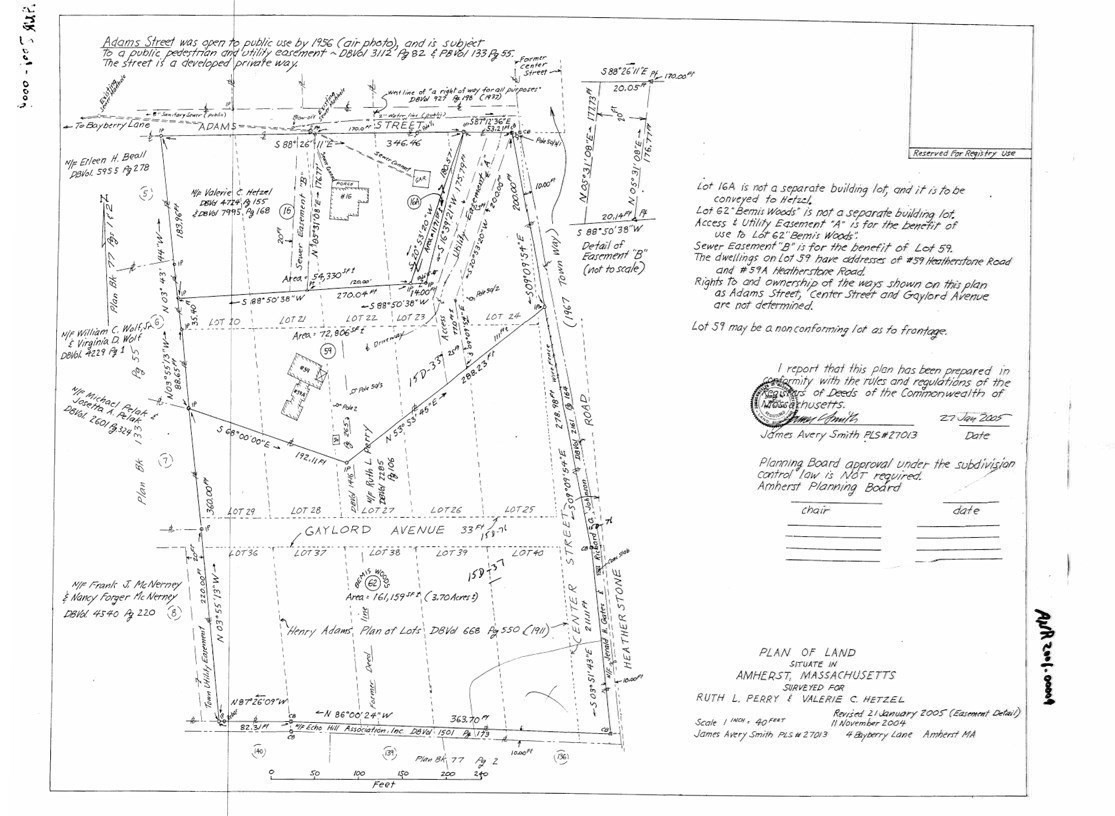 Adams Street was open to public use by 1956 (air photo), and is subject
to a public pedestrian and utility easement ~ DBVol 3112 Pg 82 & PBKVol 133 Pg 55.
The street is a developed private way.
Former
center
Street
S 88°26'11"E
170.00 FT
20.05 FT
west line of "a right of way for all purposes"
DBVol 927 Pg 198 (1972)
To Bayberry Lane
ADAMS
STREET
S 88°26'11"E
346.46
S87°12'36"E
53.21 FT
N/F Eileen H. Beall
DBVol. 5955 Pg 278
5
N/F Valerie C. Hetzel
DBVol 4724, Pg 155
& DBVol 7995, Pg 168
16
#16
CAR
16A
Sewer Easement "B"
N 05°31'08"E → 176.77 FT
20 FT
Utility Easement "A"
200.00 FT
10.00 FT
N 05°31'08"E → 177.73 FT
20 FT
N 05°31'08"E
176.77 FT
20.14 FT
S 88°50'38"W
Detail of
Easement "B"
(not to scale)
Reserved For Registry Use
Lot 16A is not a separate building lot, and it is to be
conveyed to Hetzel.
Lot 62 "Bemis Woods" is not a separate building lot.
Access & Utility Easement "A" is for the benefit of
use to Lot 62 "Bemis Woods".
Sewer Easement "B" is for the benefit of Lot 59.
The dwellings on Lot 59 have addresses of #59 Heatherstone Road
and #59A Heatherstone Road.
Rights to and ownership of the ways shown on this plan
as Adams Street, Center Street and Gaylord Avenue
are not determined.
Lot 59 may be a nonconforming lot as to frontage.
Plan Bk 77 Pg 12
183.96 FT
N 03°43'44"W
Area = 54,330 SF ±
S 88°50'38"W
270.04 FT
120.00
S 88°50'38"W
14.00 FT
S09°09'54"E
(1967 Town Way)
35.40
LOT 20
LOT 21
LOT 22
LOT 23
LOT 24
Area = 72,806 SF ±
59
N/F William C. Wolf, Sr.
& Virginia D. Wolf
DBVol 4229 Pg 1
6
N03°55'13"W
88.65 FT
Driveway
15D-35
288.23 FT
N 53°53'45"E
278.98 FT
N/F Michael Pelak &
Josetta A. Pelak
DBVol 2601 Pg 329
7
Plan Bk 133 Pg 55
S 68°00'00"E
192.11 FT
N/F Ruth L. Perry
DBVol 2285
Pg 106
360.00 FT
ROAD
I report that this plan has been prepared in
conformity with the rules and regulations of the
Registers of Deeds of the Commonwealth of
Massachusetts.
27 Jan 2005
James Avery Smith PLS #27013
Date
Planning Board approval under the subdivision
control law is NOT required.
Amherst Planning Board
chair
date
LOT 29
LOT 28
LOT 27
LOT 26
LOT 25
GAYLORD AVENUE 33 FT
15D-76
LOT 36
LOT 37
LOT 38
LOT 39
LOT 40
BEMIS WOODS
62
15D-37
Area = 161,159 SF ± (3.70 Acres ±)
N/F Frank J. McNerney
& Nancy Forger McNerney
DBVol 4540 Pg 220
8
220.00 FT
N 03°55'13"W
Town Utility Easement
Henry Adams, Plan of Lots DBVol 668 Pg 550 (1911)
Former Deed line
CENTER STREET
S09°09'54"E
HEATHERSTONE
211.11 FT
S 03°51'43"E
10.00 FT
N87°26'09"W
82.31 FT
N 86°00'24"W
363.70 FT
N/F Echo Hill Association, Inc DBVol 1501 Pg 173
140
139
136
10.00 FT
Plan Bk 77 Pg 2
0 50 100 150 200 240
Feet
PLAN OF LAND
SITUATE IN
AMHERST, MASSACHUSETTS
SURVEYED FOR
RUTH L. PERRY & VALERIE C. HETZEL
Revised 21 January 2005 (Easement Detail)
Scale 1 INCH = 40 FEET
11 November 2004
James Avery Smith PLS #27013
4 Bayberry Lane Amherst MA